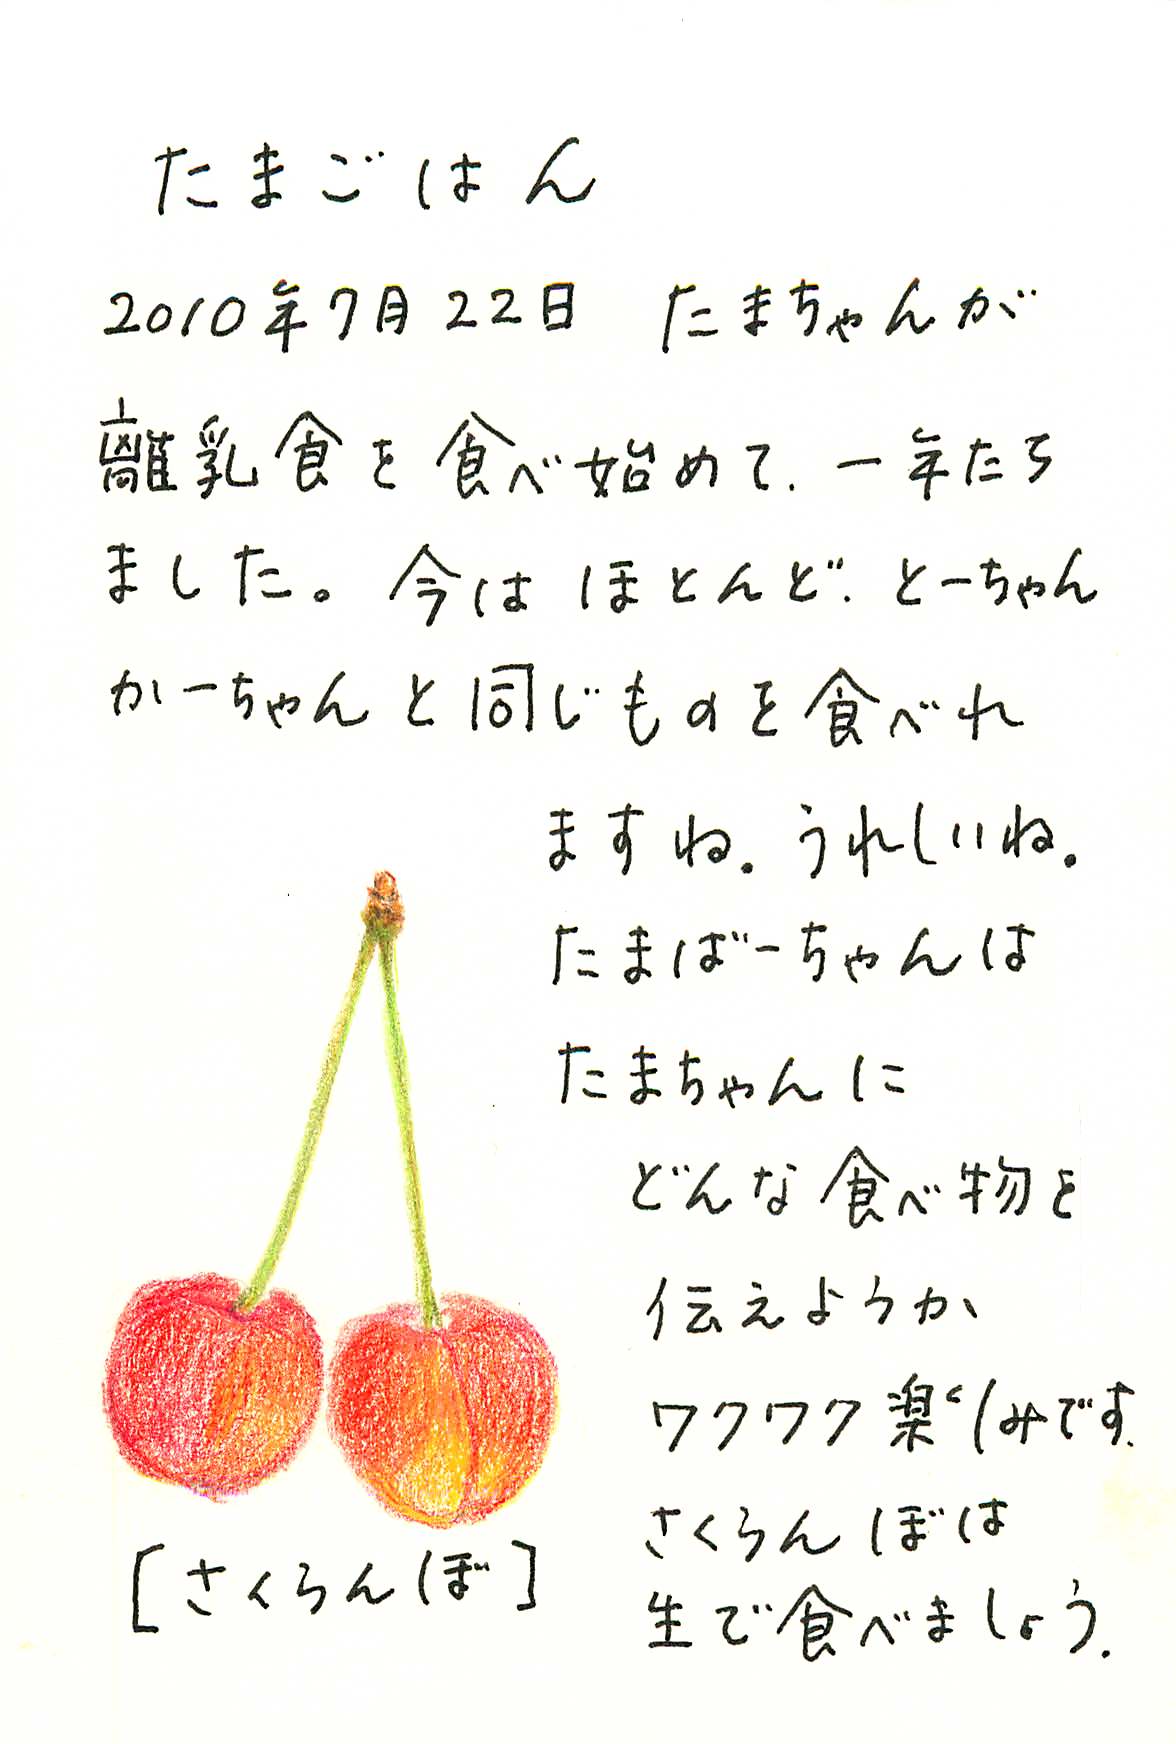 たまごはん
2010年7月22日 たまちゃんが
離乳食を食べ始めて、一年たち
ました。今はほとんど、とーちゃん
かーちゃんと同じものを食べれ
ますね。うれしいね。
たまばーちゃんは
たまちゃんに
どんな食べ物を
伝えようか
ワクワク楽しみです。
さくらんぼは
生で食べましょう。
[さくらんぼ]